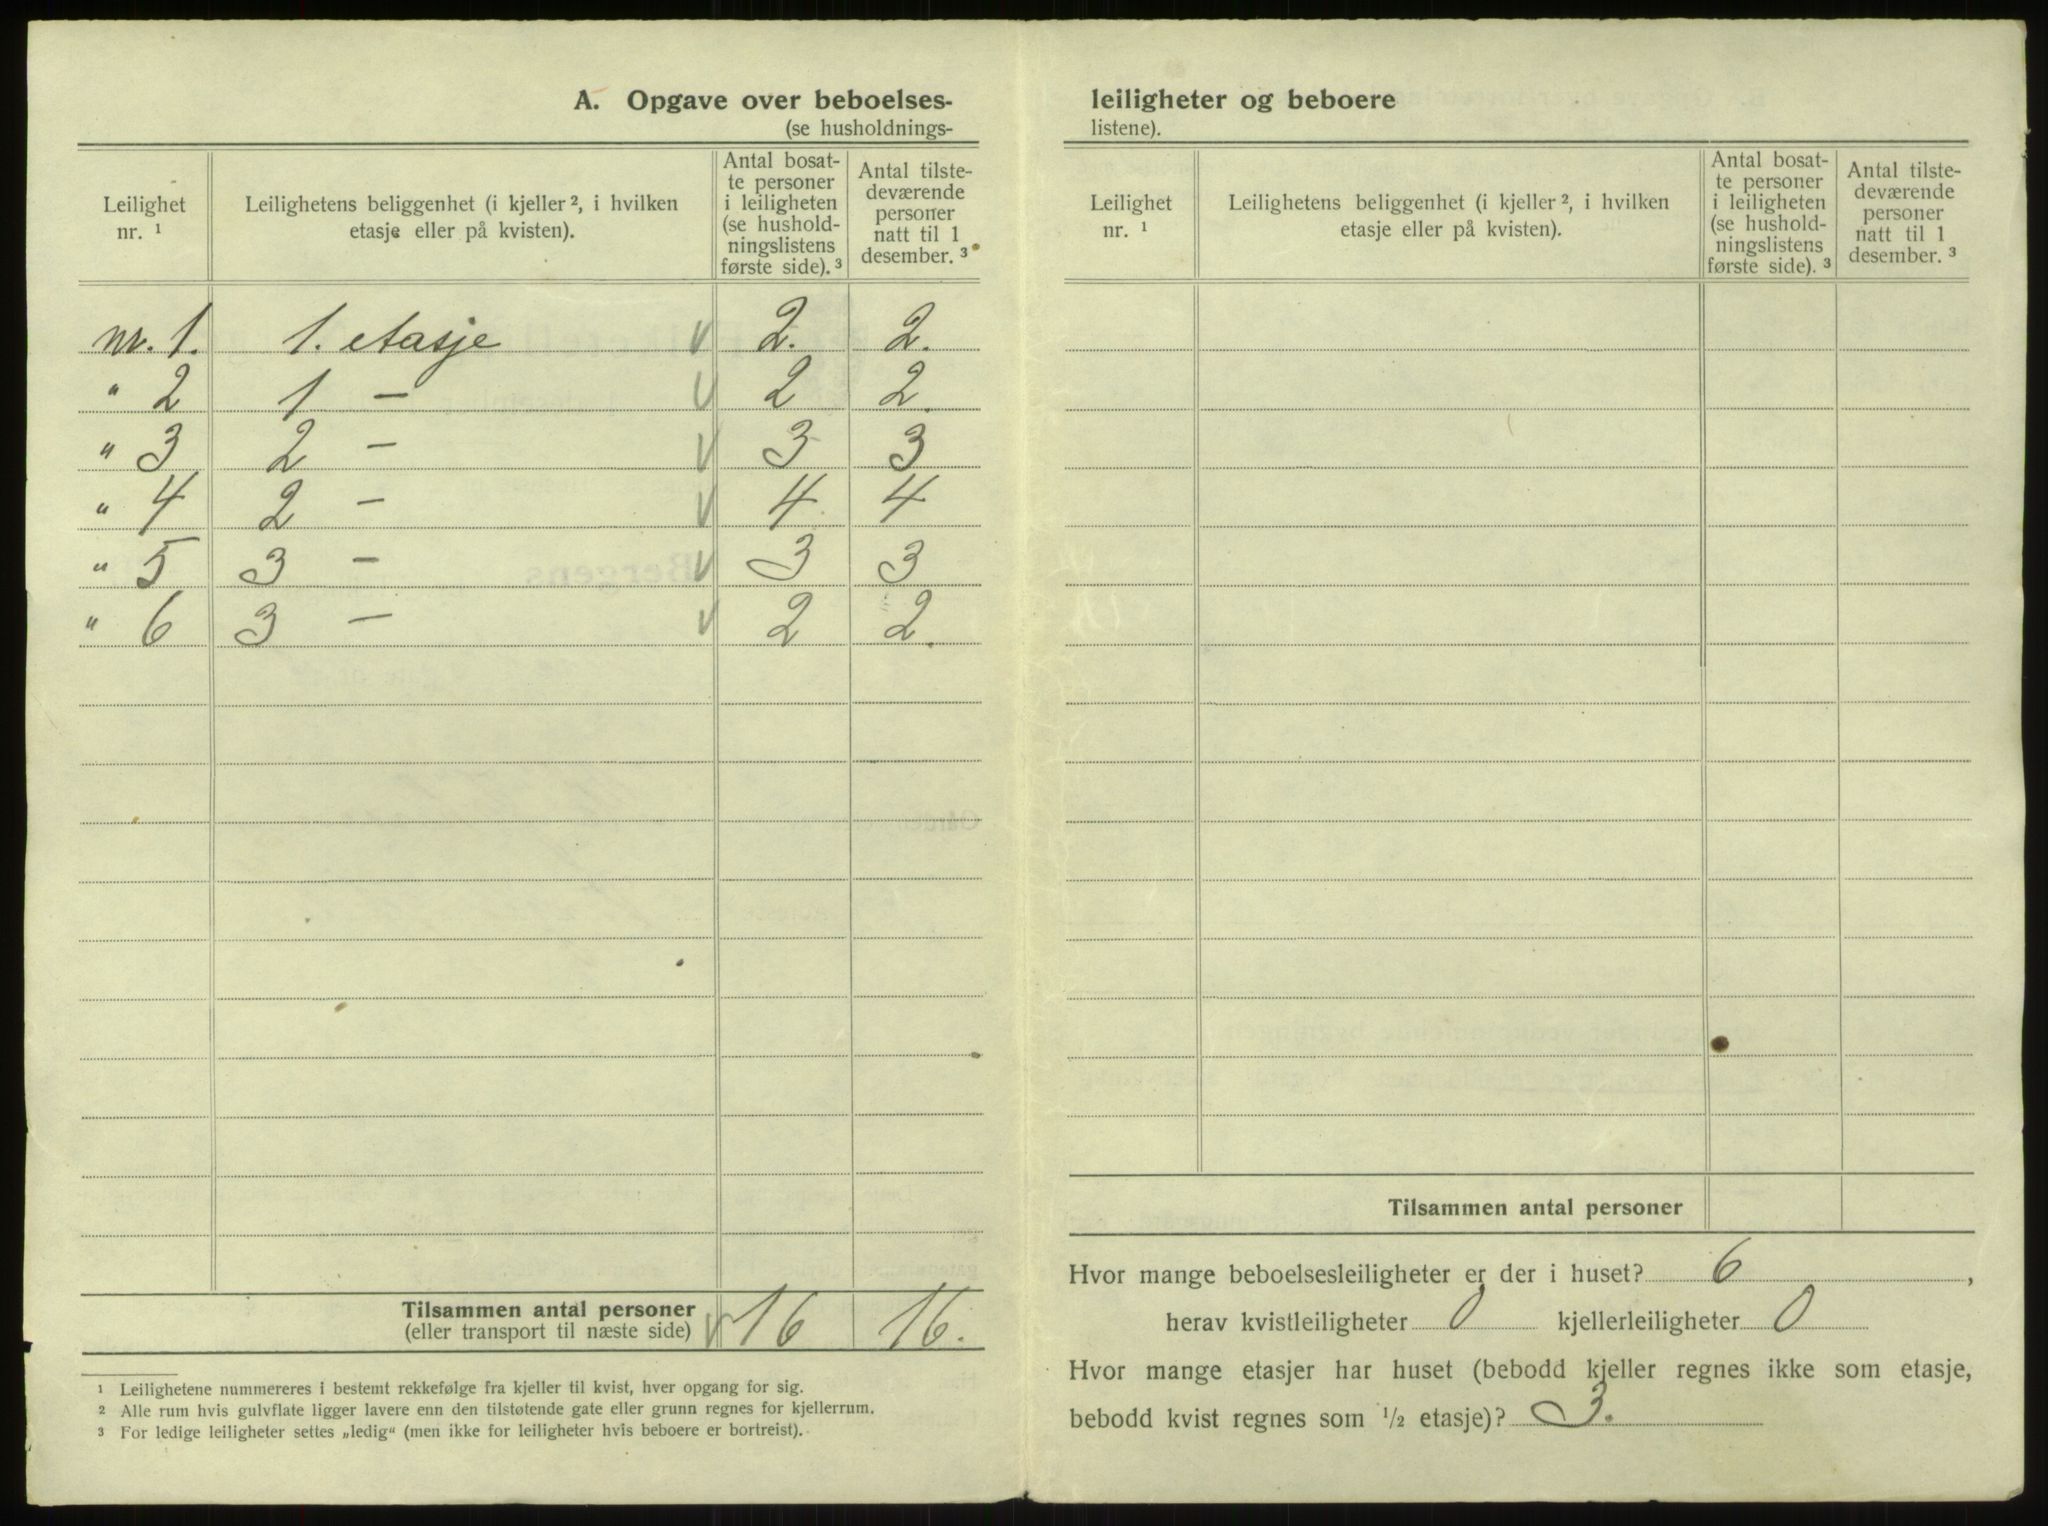 A. Opgave over beboelses-
(se husholdnings-
Leilighet nr. ¹
Leilighetens beliggenhet (i kjeller ², i hvilken
etasje eller på kvisten).
Antal bosat-
te personer
i leiligheten
(se hushold-
ningslistens
første side). ³
Antal tilste-
deværende
personer
natt til 1
desember. ³
nr. 1. 1. etasje 2. 2.
" 2 1 — 2 2.
" 3 2 — 3 3
" 4 2 — 4 4
" 5 3 — 3 3
" 6 3 — 2 2.
Tilsammen antal personer 16 16.
(eller transport til næste side)
¹ Leilighetene nummereres i bestemt rekkefølge fra kjeller til kvist, hver opgang for sig.
² Alle rum hvis gulvflate ligger lavere enn den tilstøtende gate eller grunn regnes for kjellerrum.
³ For ledige leiligheter settes „ledig“ (men ikke for leiligheter hvis beboere er bortreist).
leiligheter og beboere
listene).
Leilighet
nr. ¹
Leilighetens beliggenhet (i kjeller ², i hvilken
etasje eller på kvisten).
Antal bosat-
te personer
i leiligheten
(se hushold-
ningslistens
første side). ³
Antal tilste-
deværende
personer
natt til 1
desember. ³
Tilsammen antal personer
Hvor mange beboelsesleiligheter er der i huset? 6,
herav kvistleiligheter 0 kjellerleiligheter 0
Hvor mange etasjer har huset (bebodd kjeller regnes ikke som etasje,
bebodd kvist regnes som ½ etasje)? 3.